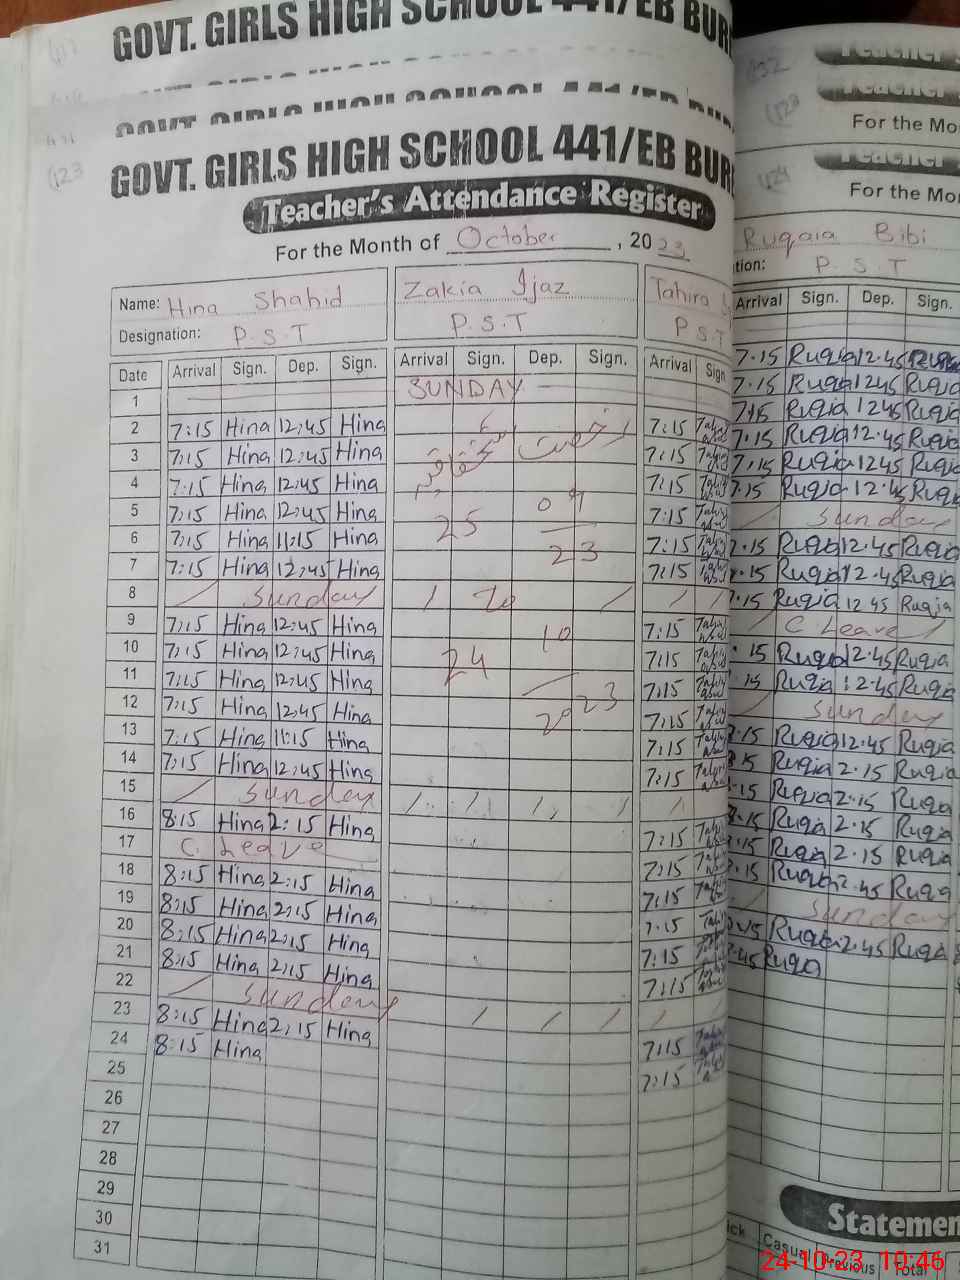 GOVT. GIRLS HIGH SCHOOL 441/EB BUR
GOVT. GIRLS HIGH SCHOOL 441/EB BUR
GOVT. GIRLS HIGH SCHOOL 441/EB BUR
123
Teacher's Attendance Register
For the Month of October, 2023
Name: Hina Shahid Zakia Ijaz Tahira
Designation: P.S.T P.S.T P.S.T
Date Arrival Sign. Dep. Sign. Arrival Sign. Dep. Sign. Arrival Sign
1 SUNDAY
2 7:15 Hina 12:45 Hina رخصت 7:15
3 7:15 Hina 12:45 Hina 7:15
4 7:15 Hina 12:45 Hina 7:15
5 7:15 Hina 12:45 Hina 25 09 7:15
6 7:15 Hina 11:15 Hina 23 7:15
7 7:15 Hina 12:45 Hina 7:15
8 Sunday
9 7:15 Hina 12:45 Hina 10 7:15
10 7:15 Hina 12:45 Hina 24 7:15
11 7:15 Hina 12:45 Hina 23 7:15
12 7:15 Hina 12:45 Hina 7:15
13 7:15 Hina 11:15 Hina 7:15
14 7:15 Hina 12:45 Hina 7:15
15 Sunday
16 8:15 Hina 2:15 Hina 7:15
17 C. Leave 7:15
18 8:15 Hina 2:15 Hina 7:15
19 8:15 Hina 2:15 Hina 7:15
20 8:15 Hina 2:15 Hina 7:15
21 8:15 Hina 2:15 Hina 7:15
22 Sunday
23 8:15 Hina 2:15 Hina 7:15
24 8:15 Hina 7:15
25
26
27
28
29
30
31
132
Teacher's
Teacher
123
For the Mo
Teacher
124
For the Mo
Ruqaia Bibi
tion: P.S.T
Arrival Sign. Dep. Sign.
7.15 Ruqia 12.45 Ruqia
7.15 Ruqia 1245 Ruqia
7.15 Ruqia 1245 Ruqia
7.15 Ruqia 12.45 Ruqia
7.15 Ruqia 1245 Ruqia
7.15 Ruqia 12.45 Ruqia
Sunday
7.15 Ruqia 12.45 Ruqia
7.15 Ruqia 12.45 Ruqia
7.15 Ruqia 1245 Ruqia
C. Leave
15 Ruqia 12.45 Ruqia
15 Ruqia 12.45 Ruqia
Sunday
15 Ruqia 12.45 Ruqia
15 Ruqia 2.15 Ruqia
15 Ruqia 2.15 Ruqia
8.15 Ruqia 2.15 Ruqia
15 Ruqia 2.15 Ruqia
15 Ruqia 2.45 Ruqia
Sunday
45 Ruqia 2.45 Ruqia
45 Ruqia
Statemen
ick Casual Previous Total
24-10-23 10:46